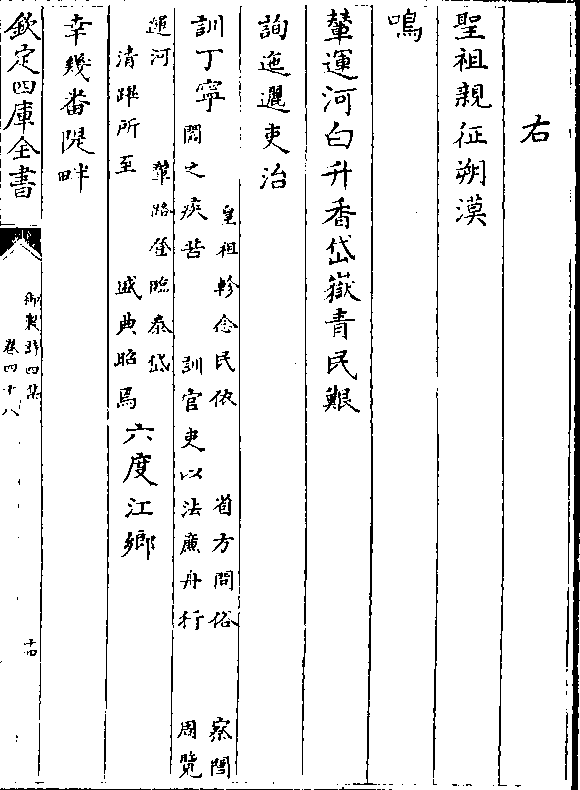 右
聖祖親征朔漠
鳴
輦運河白升香岱嶽青民艱
詢迤邐吏治
訓丁寧
皇祖軫念民依 省方問俗 察閭
閻之疾苦 訓官吏以法廉舟行 周覽
運河 輦路登臨泰岱
清蹕所至 盛典昭焉
六度江鄉
幸幾番隄畔
欽定四庫全書
御製詩四集
卷四十八
十四